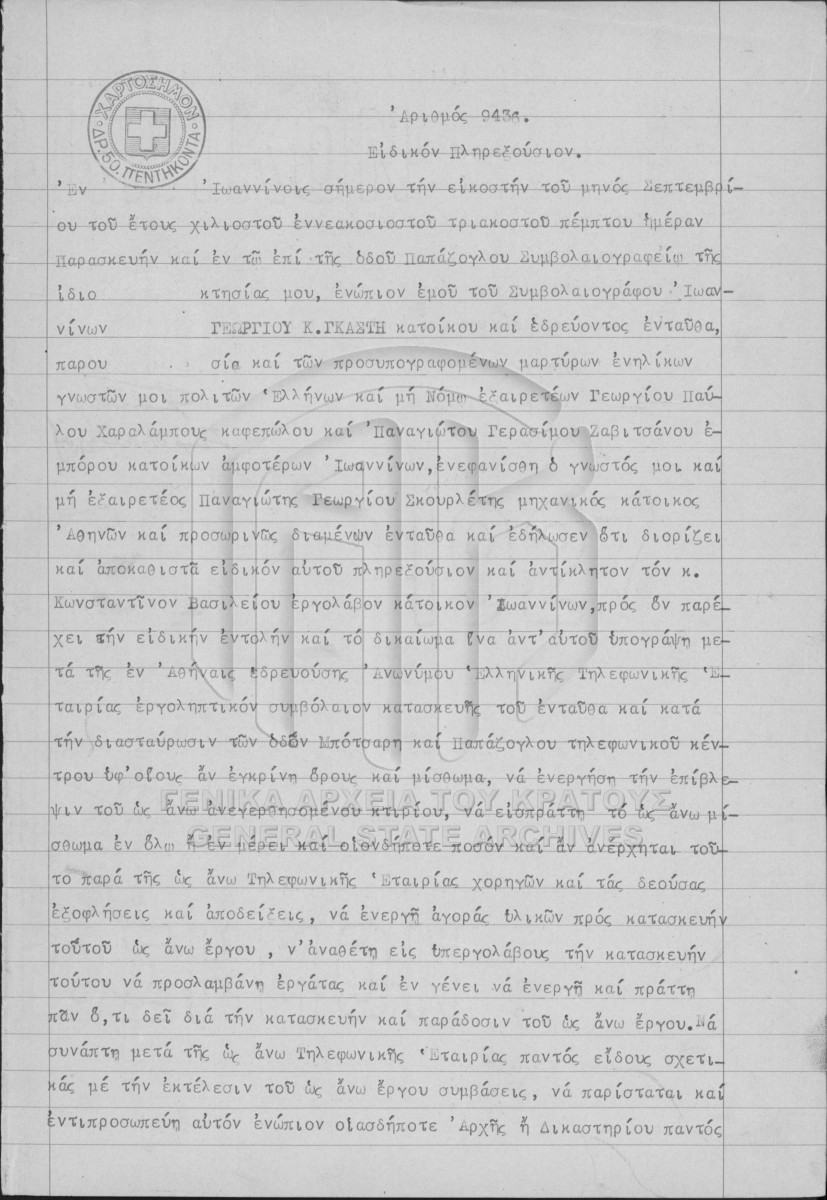 ΧΑΡΤΟΣΗΜΟΝ
ΔΡ. 50. ΠΕΝΤΗΚΟΝΤΑ
Ἀριθμός 9436.
Εἰδικόν Πληρεξούσιον.
Ἐν Ἰωαννίνοις σήμερον τήν εἰκοστήν τοῦ μηνός Σεπτεμβρί-
ου τοῦ ἔτους χιλιοστοῦ ἐννεακοσιοστοῦ τριακοστοῦ πέμπτου ἡμέραν
Παρασκευήν καί ἐν τῷ ἐπί τῆς ὁδοῦ Παπάζογλου Συμβολαιογραφείῳ τῆς
ἰδιο κτησίας μου, ἐνώπιον ἐμοῦ τοῦ Συμβολαιογράφου Ἰωαν-
νίνων ΓΕΩΡΓΙΟΥ Κ. ΓΚΑΣΤΗ κατοίκου καί ἑδρεύοντος ἐνταῦθα,
παρου σίᾳ καί τῶν προσυπογραφομένων μαρτύρων ἐνηλίκων
γνωστῶν μοι πολιτῶν Ἑλλήνων καί μή Νόμῳ ἐξαιρετέων Γεωργίου Παύ-
λου Χαραλάμπους καφεπώλου καί Παναγιώτου Γερασίμου Ζαβιτσάνου ἐ-
μπόρου κατοίκων ἀμφοτέρων Ἰωαννίνων, ἐνεφανίσθη ὁ γνωστός μοι καί
μή ἐξαιρετέος Παναγιώτης Γεωργίου Σκουρλέτης μηχανικός κάτοικος
Ἀθηνῶν καί προσωρινῶς διαμένων ἐνταῦθα καί ἐδήλωσεν ὅτι διορίζει
καί ἀποκαθιστᾶ εἰδικόν αὐτοῦ πληρεξούσιον καί ἀντίκλητον τόν κ.
Κωνσταντῖνον Βασιλείου ἐργολάβον κάτοικον Ἰωαννίνων, πρός ὅν παρέ-
χει τήν εἰδικήν ἐντολήν καί τό δικαίωμα ἵνα ἀντ' αὐτοῦ ὑπογράψη με-
τά τῆς ἐν Ἀθήναις ἑδρευούσης Ἀνωνύμου Ἑλληνικῆς Τηλεφωνικῆς Ἑ-
ταιρίας ἐργοληπτικόν συμβόλαιον κατασκευῆς τοῦ ἐνταῦθα καί κατά
τήν διασταύρωσιν τῶν ὁδῶν Μπότσαρη καί Παπάζογλου τηλεφωνικοῦ κέν-
τρου ὑφ' οἵους ἄν ἐγκρίνη ὅρους καί μίσθωμα, νά ἐνεργήση τήν ἐπίβλε-
ψιν τοῦ ὡς ἄνω ἀνεγερθησομένου κτιρίου, νά εἰσπράττη τό ὡς ἄνω μί-
σθωμα ἐν ὅλῳ ἤ ἐν μέρει καί οἱονδήποτε ποσόν καί ἄν ἀνέρχηται τοῦ-
το παρά τῆς ὡς ἄνω Τηλεφωνικῆς Ἑταιρίας χορηγῶν καί τάς δεούσας
ἐξοφλήσεις καί ἀποδείξεις, νά ἐνεργῆ ἀγοράς ὑλικῶν πρός κατασκευήν
τοῦτοῦ ὡς ἄνω ἔργου, ν' ἀναθέτη εἰς ὑπεργολάβους τήν κατασκευήν
τούτου νά προσλαμβάνη ἐργάτας καί ἐν γένει νά ἐνεργῆ καί πράττη
πᾶν ὅ,τι δεῖ διά τήν κατασκευήν καί παράδοσιν τοῦ ὡς ἄνω ἔργου. Νά
συνάπτη μετά τῆς ὡς ἄνω Τηλεφωνικῆς Ἑταιρίας παντός εἴδους σχετι-
κάς μέ τήν ἐκτέλεσιν τοῦ ὡς ἄνω ἔργου συμβάσεις, νά παρίσταται καί
ἐντιπροσωπεύη αὐτόν ἐνώπιον οἱασδήποτε Ἀρχῆς ἤ Δικαστηρίου παντός
ΓΕΝΙΚΑ ΑΡΧΕΙΑ ΤΟΥ ΚΡΑΤΟΥΣ
GENERAL STATE ARCHIVES